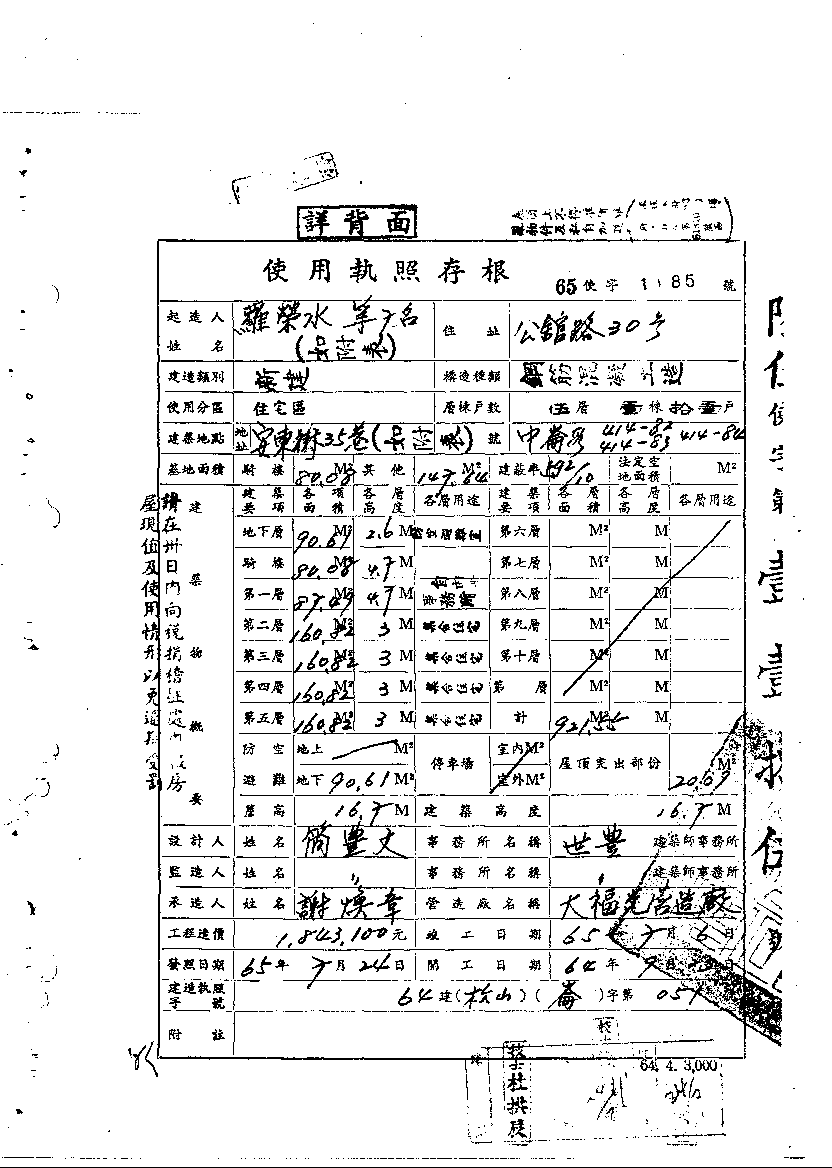 詳背面
使用執照存根
65使字1185號
起造人姓名 羅榮水等7名(如附表) 住址 公館路30号
建造類別 構造種類 鋼筋混凝土造
使用分區 住宅區 層棟戶數 伍層壹棟拾壹戶
建築地點 地址 安東街35巷(如附表)號 中崙段 414-82 414-83 414-84
基地面積 騎樓 80.08M² 其他 147.64M² 建蔽率 法定空地面積 M²
建築要項 各項面積 各層高度 各層用途 建築要項 各層面積 各層高度 各層用途
地下層 90.61M² 2.6M 第六層 M² M
騎樓 80.08M² 4.7M 第七層 M² M
第一層 87.49M² 4.7M 第八層 M² M
第二層 160.82M² 3M 集合住宅 第九層 M² M
第三層 160.82M² 3M 集合住宅 第十層 M² M
第四層 160.82M² 3M 集合住宅 第 層 M² M
第五層 160.82M² 3M 集合住宅 計 921.55M²
防空避難 地上 M² 停車場 室內M² 屋頂突出部份 20.09M²
地下 90.61M² 室外M²
簷高 16.7M 建築高度 16.7M
建築物概要
設計人 姓名 簡豐文 事務所名稱 世豐 建築師事務所
監造人 姓名 〃 事務所名稱 〃 建築師事務所
承造人 姓名 謝煥章 營造廠名稱 大福光營造廠
工程造價 1,843,100元 竣工日期 65年7月6日
發照日期 65年7月24日 開工日期 64年9月
建造執照字號 64建(松山)(崙)字第051
附註
請在卅日內向稅捐稽征處內
屋現值及使用情形以免逾期受罰
64. 4. 3,000